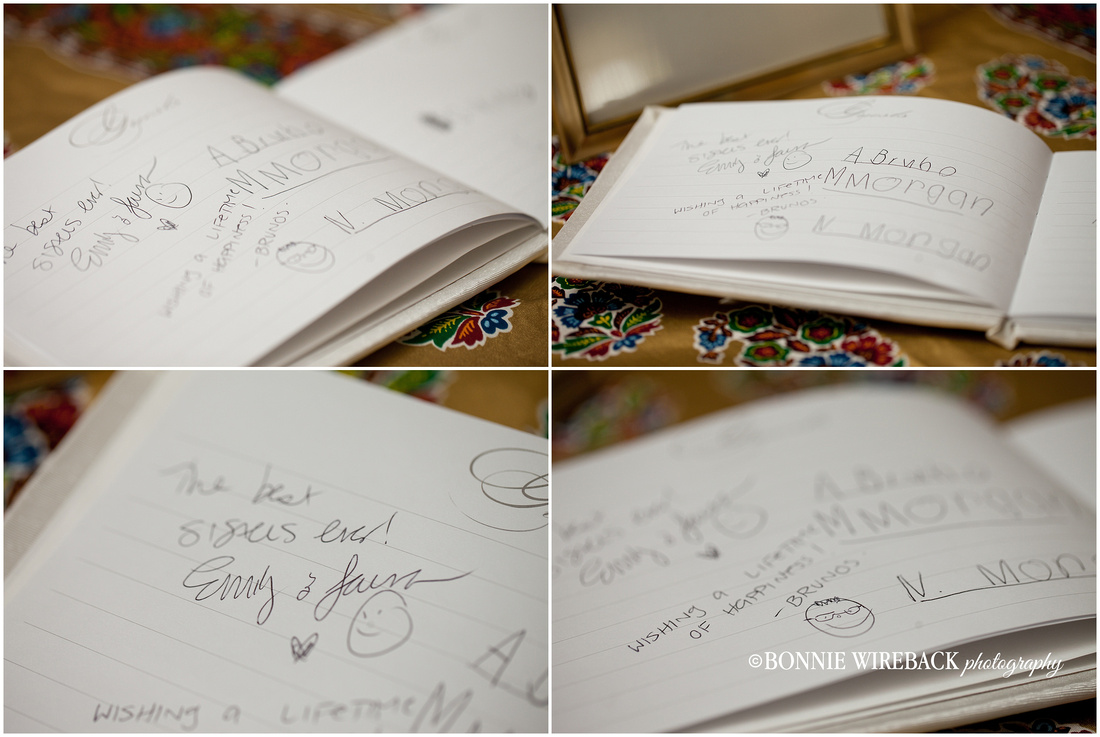 Guests
The best
sisters ever!
Emily & Laura
A Bruno
MMorgan
WISHING a LIFETIME
OF HAPPINESS!
-BRUNOS.
N. Mon
Guests
The best
sisters ever!
Emily & Laura
A Bruno
MMorgan
WISHING a LIFETIME
OF HAPPINESS!
-BRUNOS
N Morgan
The best
sisters ever!
Emily & Laura
A
WISHING a LIFETIME
best
sisters ever!
Emily & Laura
A Bruno
MMorgan
WISHING a LIFETIME
OF HAPPINESS!
-BRUNOS
N. Mon
©BONNIE WIREBACK photography